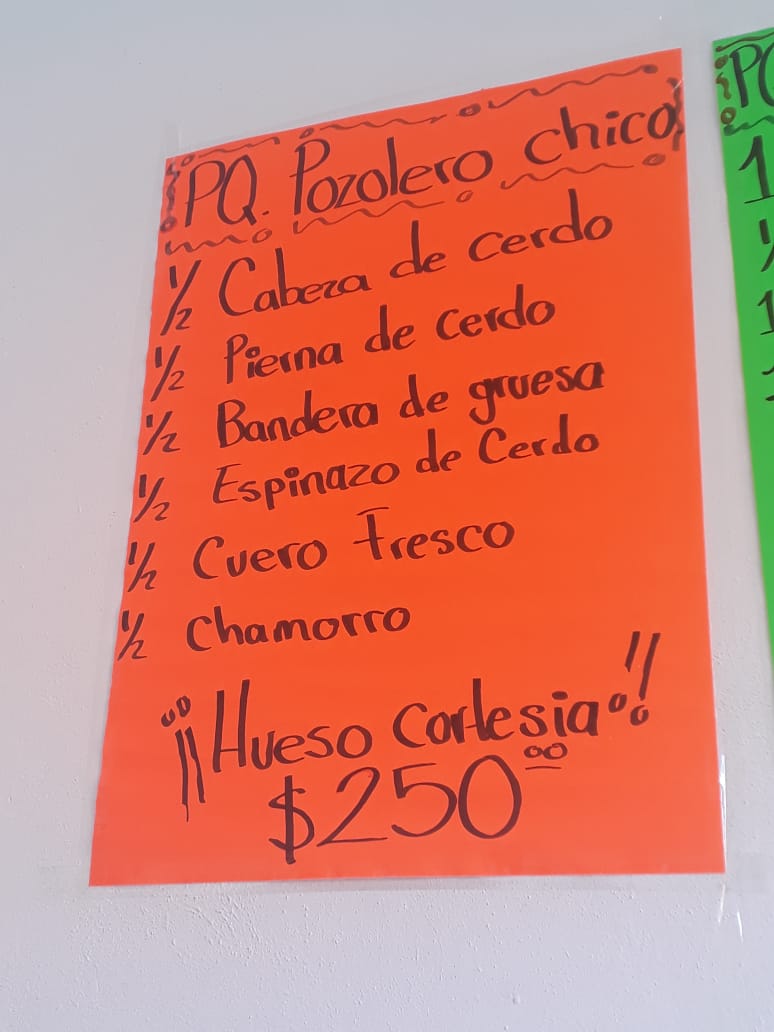 PQ. Pozolero chico
1/2 Cabeza de cerdo
1/2 Pierna de cerdo
1/2 Bandera de gruesa
1/2 Espinazo de Cerdo
1/2 Cuero Fresco
1/2 Chamorro
¡¡Hueso Cortesia!!
$250.00